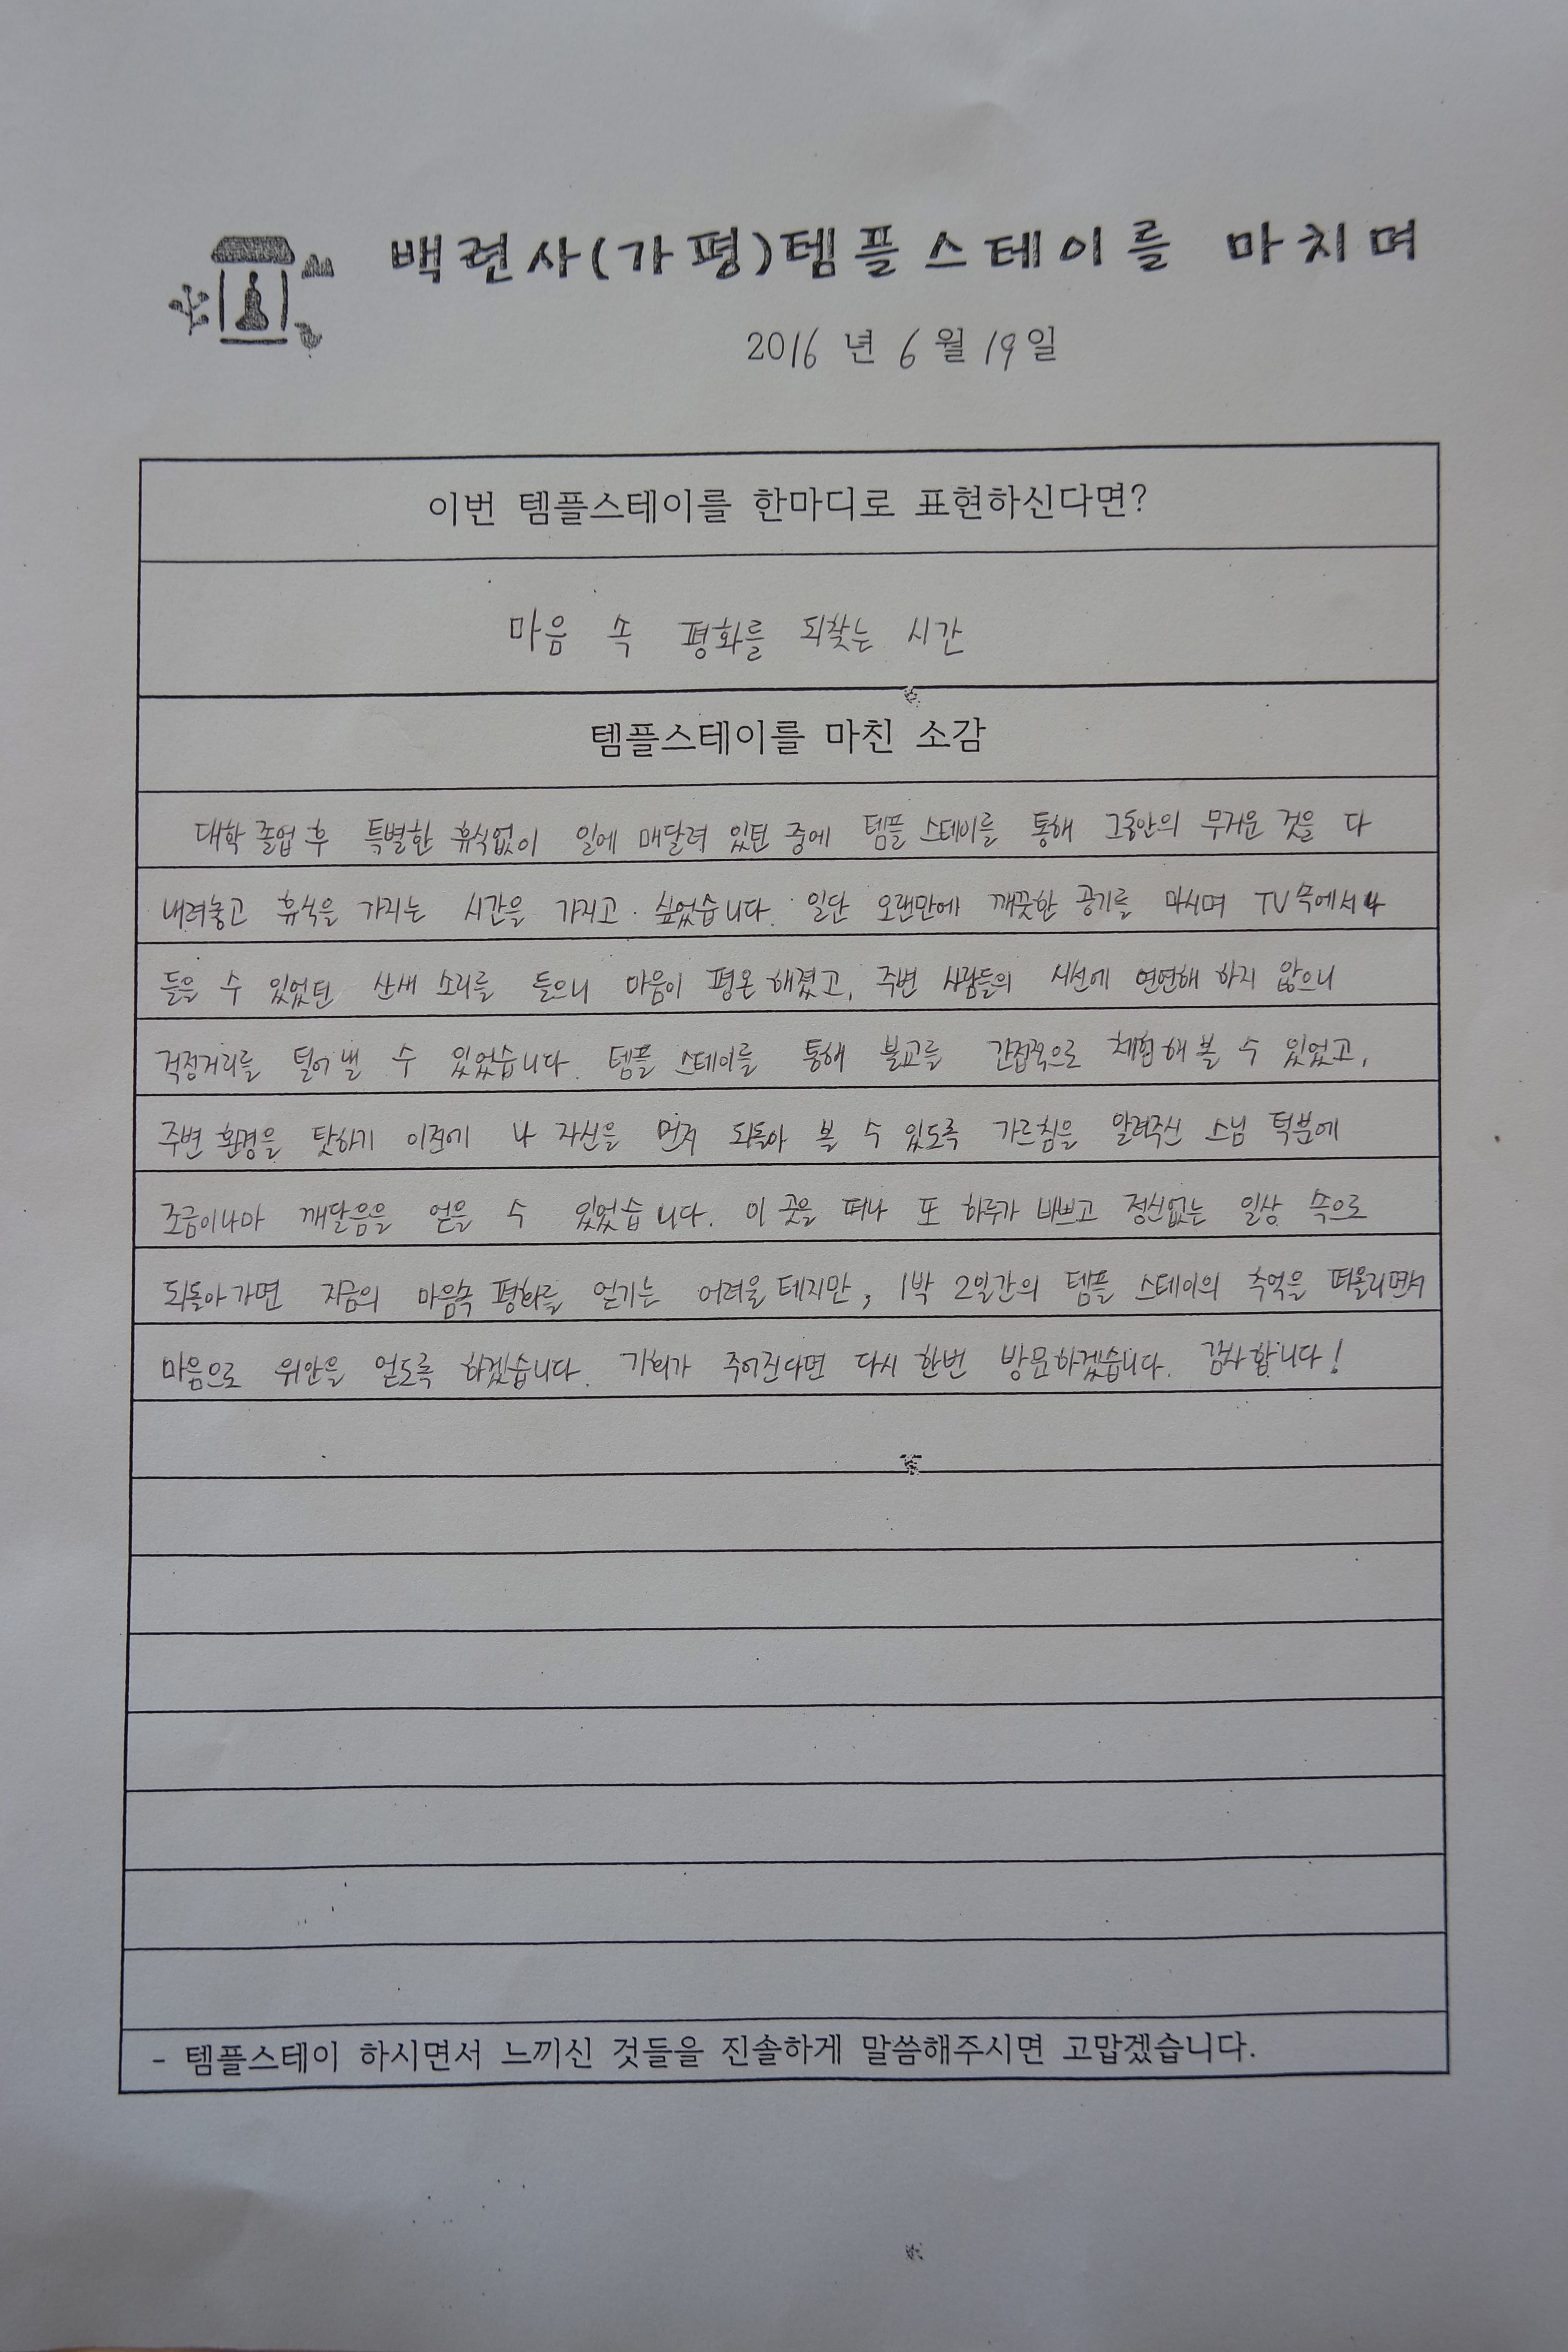 백련사(가평)템플스테이를 마치며
2016 년 6 월 19일
이번 템플스테이를 한마디로 표현하신다면?
마음 속 평화를 되찾는 시간
템플스테이를 마친 소감
대학 졸업 후 특별한 휴식없이 일에 매달려 있던 중에 템플 스테이를 통해 그동안의 무거운 것을 다
내려놓고 휴식을 가지는 시간을 가지고 싶었습니다. 일단 오랜만에 깨끗한 공기를 마시며 TV속에서나
들을 수 있었던 산새 소리를 들으니 마음이 평온해졌고, 주변 사람들의 시선에 연연해 하지 않으니
걱정거리를 털어낼 수 있었습니다. 템플 스테이를 통해 불교를 간접적으로 체험해 볼 수 있었고,
주변 환경을 탓하기 이전에 나 자신을 먼저 되돌아 볼 수 있도록 가르침을 알려주신 스님 턱분에
조금이나마 깨달음을 얻을 수 있었습니다. 이 곳을 떠나 또 하루가 바쁘고 정신없는 일상 속으로
되돌아가면 지금의 마음속 평화를 얻기는 어려울 테지만, 1박 2일간의 템플 스테이의 추억을 떠올리면서
마음으로 위안을 얻도록 하겠습니다. 기회가 주어진다면 다시 한번 방문하겠습니다. 감사합니다!
- 템플스테이 하시면서 느끼신 것들을 진솔하게 말씀해주시면 고맙겠습니다.